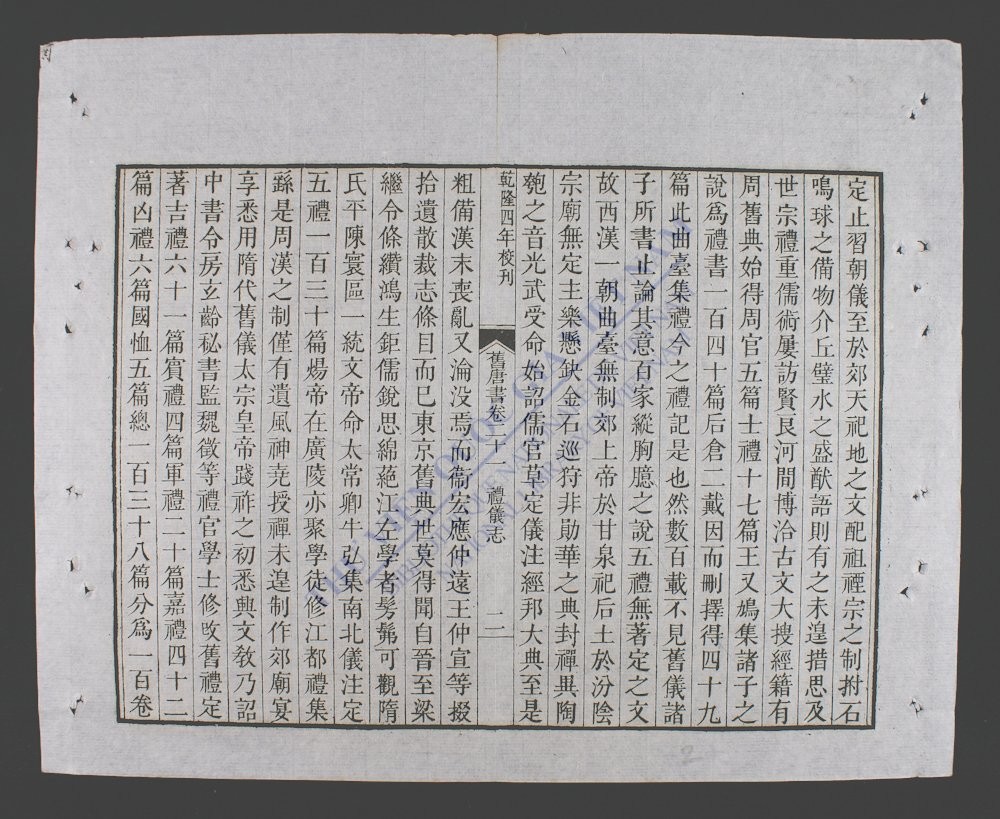 定止習朝儀至於郊天祀地之文配祖禋宗之制拊石
鳴球之備物介丘璧水之盛猷語則有之未遑措思及
世宗禮重儒術屢訪賢良河間博洽古文大搜經籍有
周舊典始得周官五篇士禮十七篇王又鳩集諸子之
說爲禮書一百四十篇后倉二戴因而刪擇得四十九
篇此曲臺集禮今之禮記是也然數百載不見舊儀諸
子所書止論其意百家縱胸臆之說五禮無著定之文
故西漢一朝曲臺無制郊上帝於甘泉祀后土於汾陰
宗廟無定主樂懸缺金石巡狩非勛華之典封禪異陶
匏之音光武受命始詔儒官草定儀注經邦大典至是
乾隆四年校刊
舊唐書卷二十一 禮儀志 二
粗備漢末喪亂又淪没焉而衞宏應仲遠王仲宣等掇
拾遺散裁志條目而已東京舊典世莫得聞自晉至梁
繼令條纘鴻生鉅儒銳思綿蕝江左學者髣髴可觀隋
氏平陳寰區一統文帝命太常卿牛弘集南北儀注定
五禮一百三十篇煬帝在廣陵亦聚學徒修江都禮集
繇是周漢之制僅有遺風神堯授禪未遑制作郊廟宴
享悉用隋代舊儀太宗皇帝踐祚之初悉興文教乃詔
中書令房玄齡秘書監魏徵等禮官學士修改舊禮定
著吉禮六十一篇賓禮四篇軍禮二十篇嘉禮四十二
篇凶禮六篇國恤五篇總一百三十八篇分爲一百卷
2